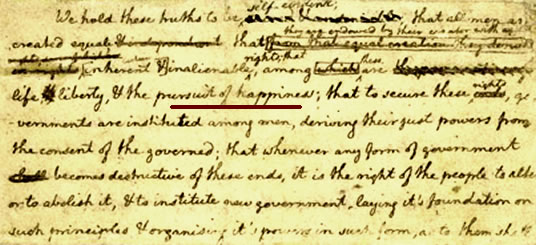 self-evident;
We hold these truths to be that all men ar
they are endowed by their creator with
created equal & independant that from that equal creation they derive
rights; that these
inherent & inalienable, among which are
life & liberty, & the pursuit of happiness; that to secure these rights, go
-vernments are instituted among men, deriving their just powers from
the consent of the governed; that whenever any form of government
shall becomes destructive of these ends, it is the right of the people to alte
or to abolish it, & to institute new government, laying it's foundation on
such principles & organising it's powers in such form, as to them sh